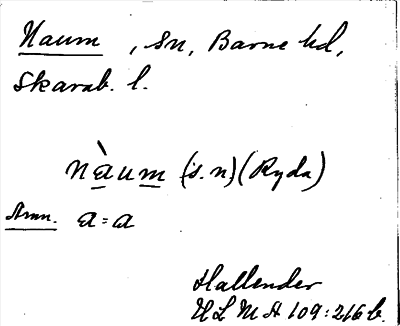 Naum, sn, Barne hd,
Skarab. l.
nàum (s.n) (Ryda)
Anm. a = a
Hallender
ULMA 109:216 b.